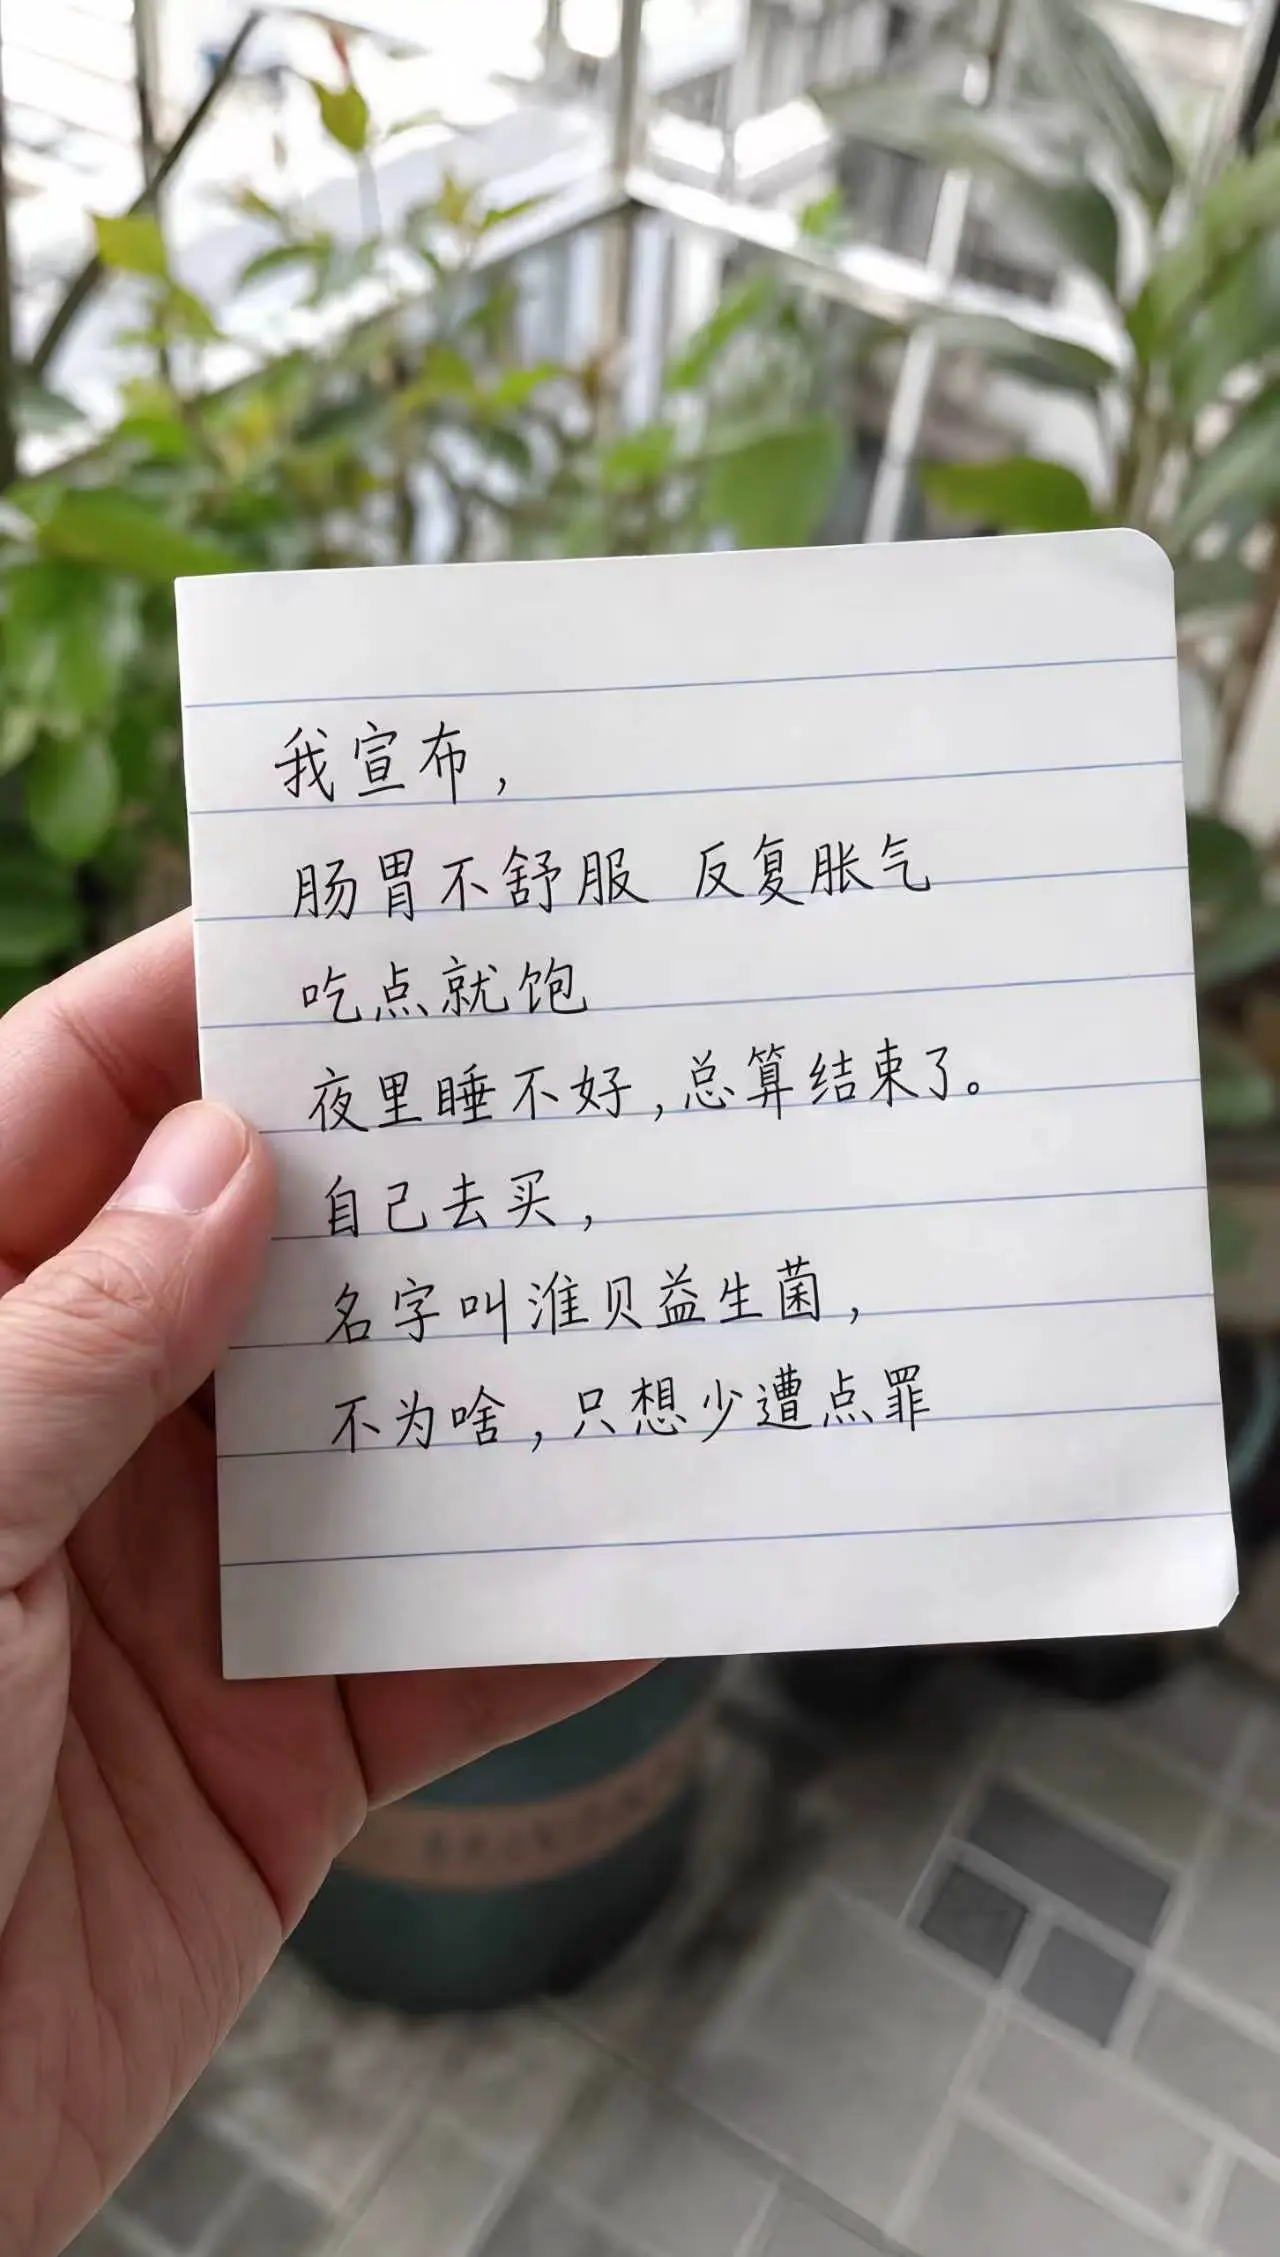 我宣布，
肠胃不舒服 反复胀气
吃点就饱
夜里睡不好，总算结束了。
自己去买，
名字叫淮贝益生菌，
不为啥，只想少遭点罪